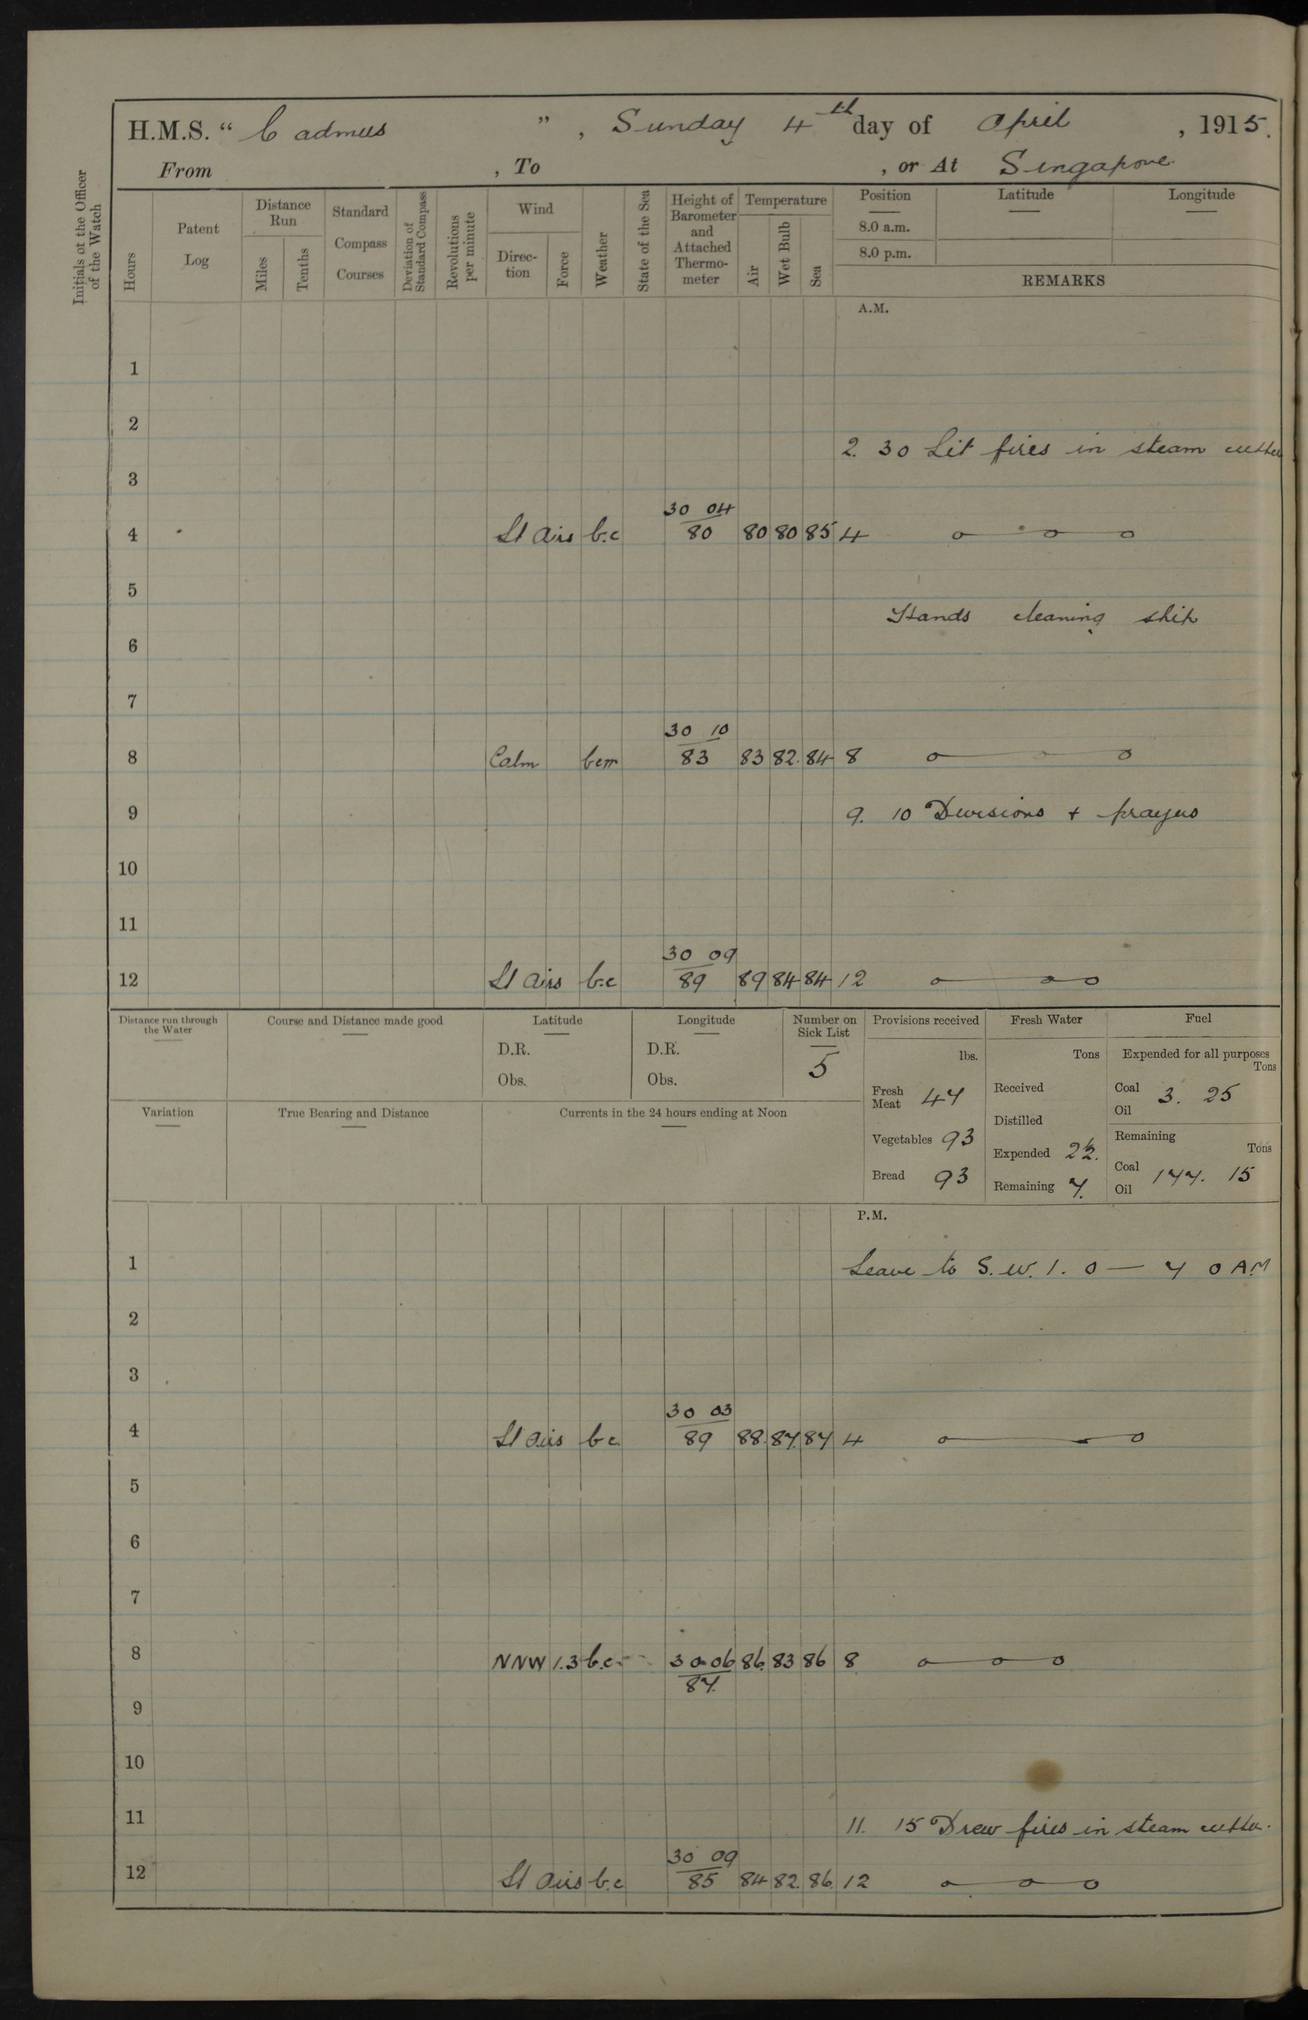 H.M.S. " Cadmus ", Sunday 4th day of April, 1915.
From , To , or At Singapore
Initials of the Officer of the Watch
Hours
Patent Log
Distance Run
Miles
Tenths
Standard Compass Courses
Deviation of Standard Compass
Revolutions per minute
Wind
Direction
Force
Weather
State of the Sea
Height of Barometer and Attached Thermometer
Temperature
Air
Wet Bulb
Sea
Position
8.0 a.m.
8.0 p.m.
Latitude
Longitude
REMARKS
A.M.
1
2
2. 30 Lit fires in steam cutter
3
30 04
4 Lt airs b.c 80 80 80 85 4 o o o
5
Hands cleaning ship
6
7
30 10
8 Calm bcm 83 83 82. 84 8 o o
9 9. 10 Divisions + prayers
10
11
30 09
12 Lt airs b.c 89 89 84 84 12 o o o
Distance run through the Water
Course and Distance made good
Latitude
D.R.
Obs.
Longitude
D.R.
Obs.
Number on Sick List
5
Provisions received
lbs.
Fresh Meat 47
Vegetables 93
Bread 93
Fresh Water
Tons
Received
Distilled
Expended
Remaining 7.
Fuel
Expended for all purposes
Tons
Coal 3. 25
Oil
Remaining
Tons
Coal 177. 15
Oil
Variation
True Bearing and Distance
Currents in the 24 hours ending at Noon
P.M.
1 Leave to S.W. 1. 0 — 7 0 AM
2
3
30 03
4 Lt airs b.c. 89 88. 87. 87 4 o o
5
6
7
8 NNW 1.3 b.c. 30.06 86. 83 86 8 o o o
87.
9
10
11 11. 15 Drew fires in steam cutter.
30 09
12 Lt airs b.c 85 84 82. 86. 12 o o o